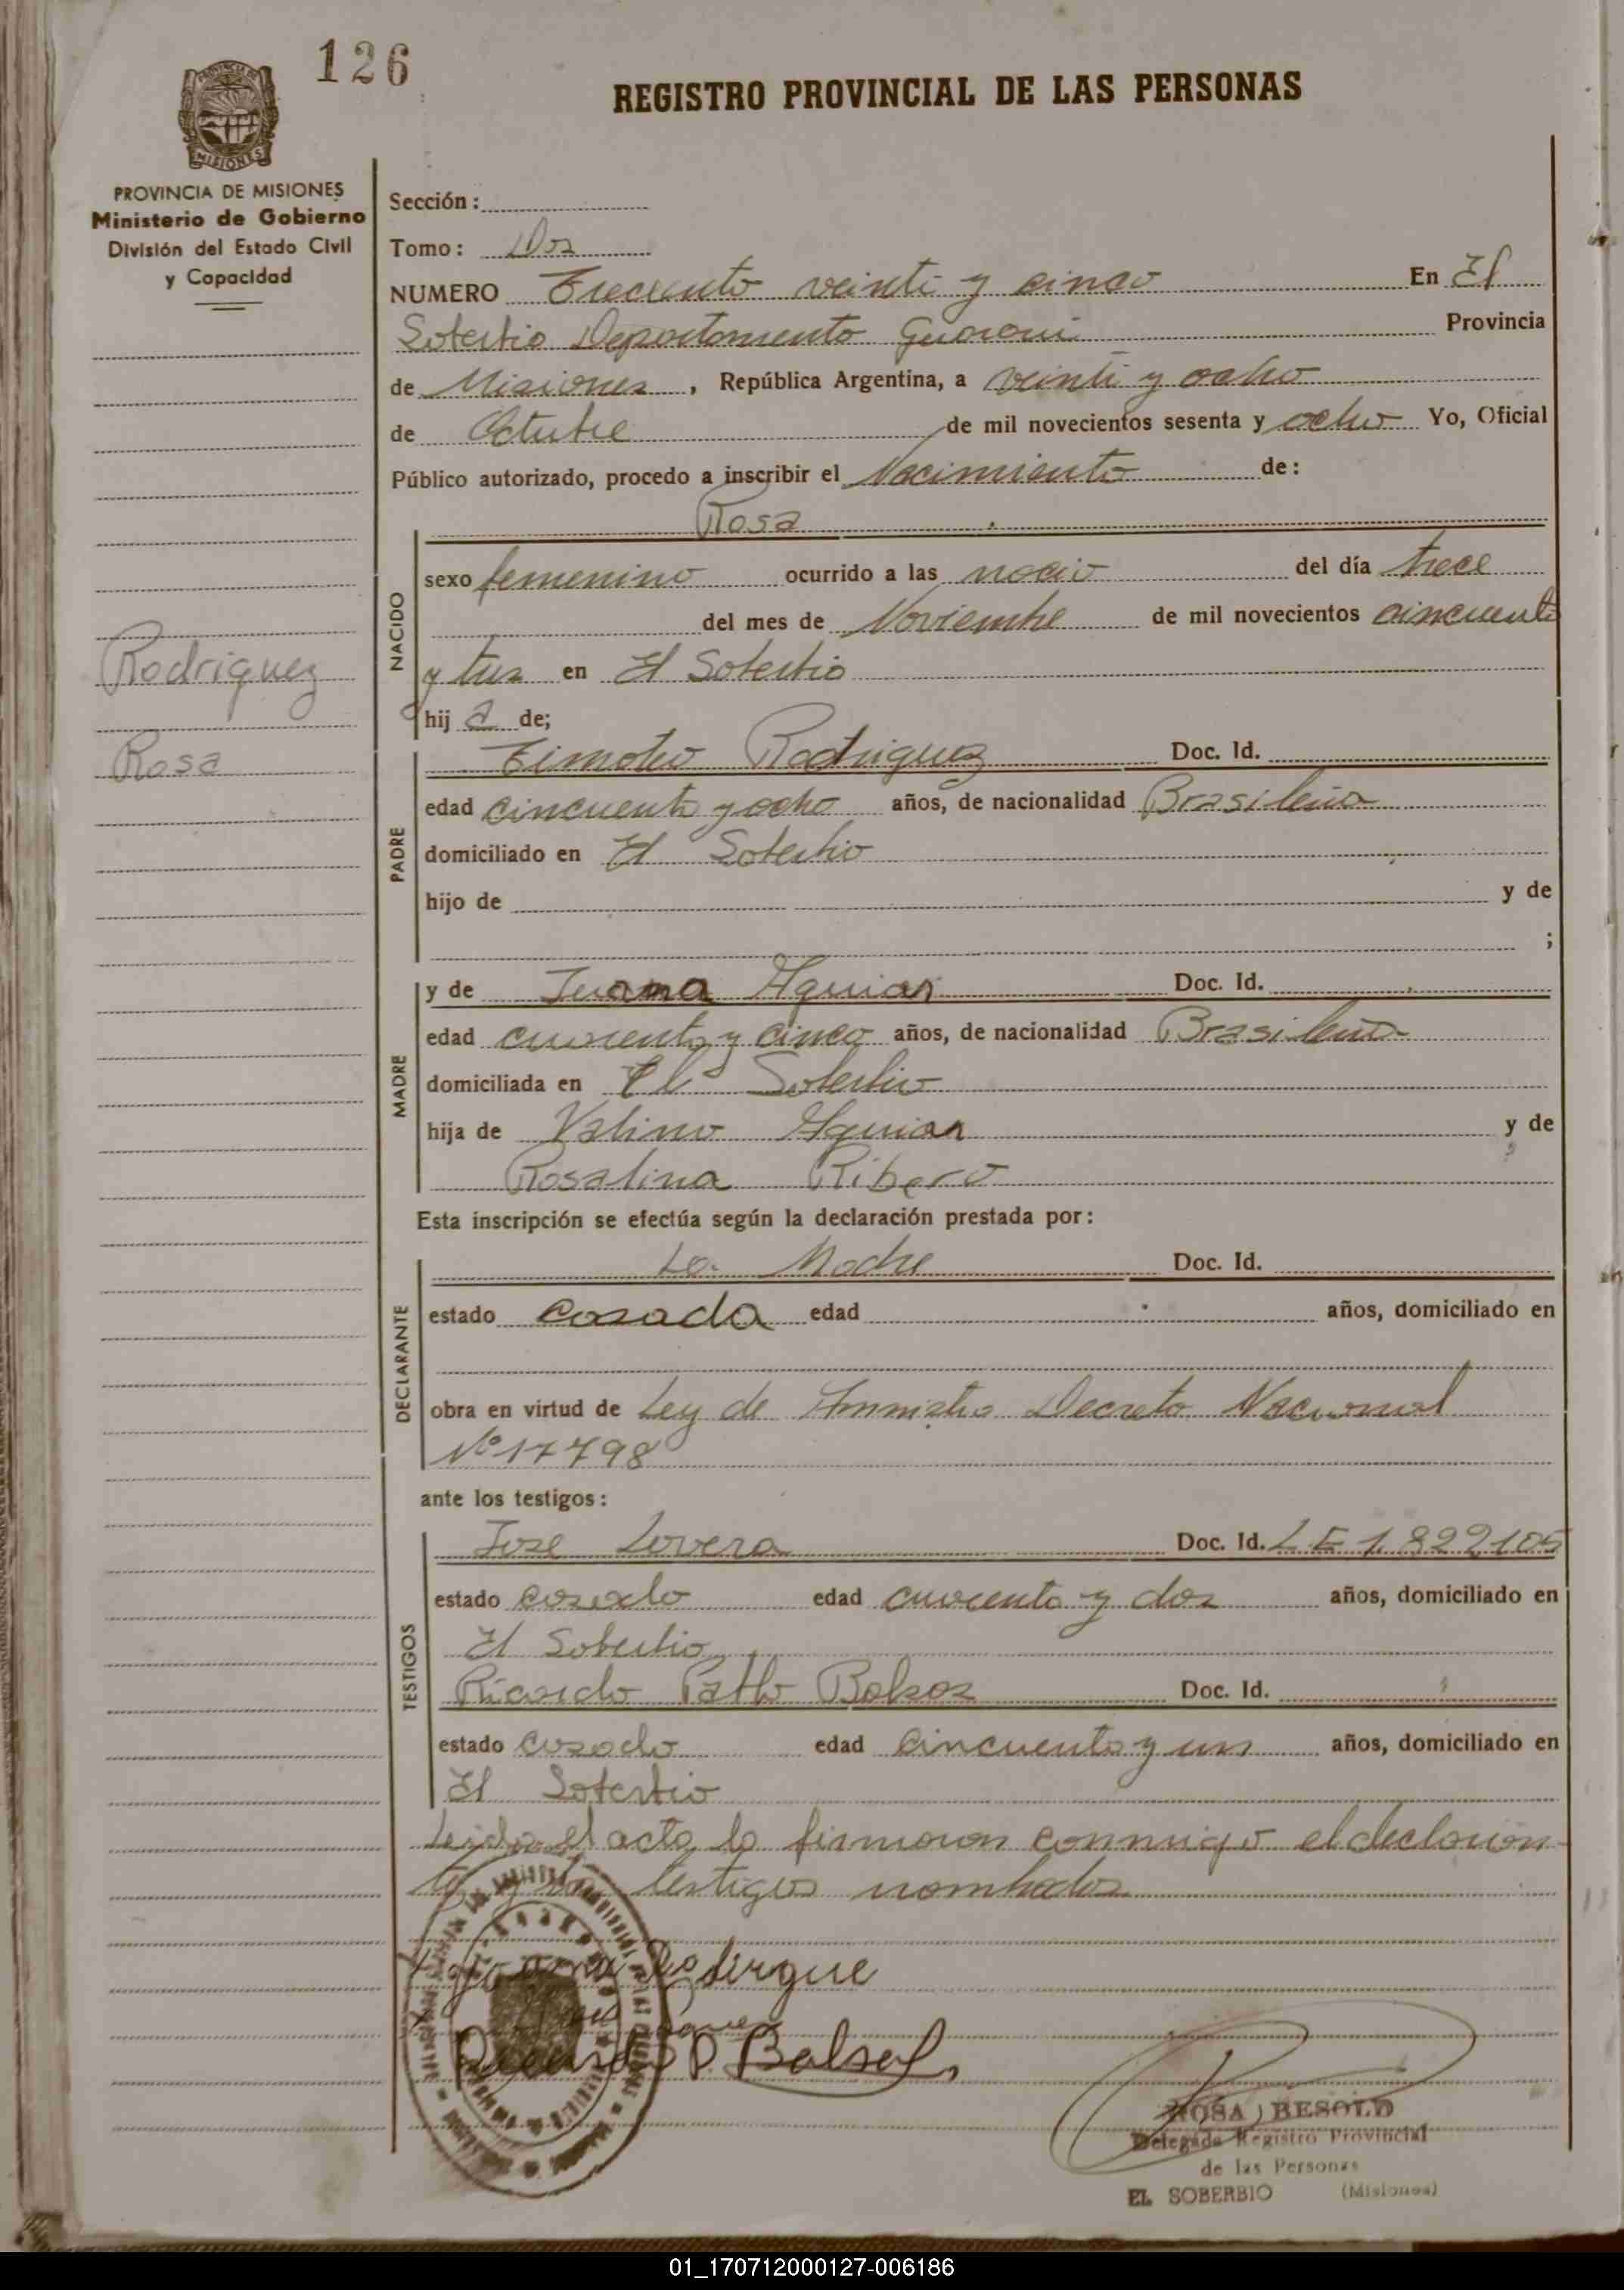 126
REGISTRO PROVINCIAL DE LAS PERSONAS
PROVINCIA DE MISIONES
Ministerio de Gobierno
División del Estado Civil
y Capacidad
Sección:
Tomo: Dos
NUMERO Treciento veinti y cinco En El
Soberbio Departamento Guarani Provincia
de Misiones, República Argentina, a veinti y ocho
de Octubre de mil novecientos sesenta y ocho Yo, Oficial
Público autorizado, procedo a inscribir el Nacimiento de:
Rosa
NACIDO
sexo femenino ocurrido a las del día trece
del mes de Noviembre de mil novecientos cincuenta
y tres en El Soberbio
hij a de;
Rodriguez
Rosa
PADRE
Timoteo Rodriguez Doc. Id.
edad cincuenta y ocho años, de nacionalidad Brasileña
domiciliado en El Soberbio
hijo de y de
;
MADRE
y de Juana Aguiar Doc. Id.
edad cuarenta y cinco años, de nacionalidad Brasileña
domiciliada en El Soberbio
hija de Valino Aguiar y de
Rosalina Ribero
Esta inscripción se efectúa según la declaración prestada por:
DECLARANTE
La Madre Doc. Id.
estado casada edad años, domiciliado en
obra en virtud de Ley de Amnistia Decreto Nacional
Nº 17798
ante los testigos:
TESTIGOS
Jose Lovera Doc. Id. L E 1.822105
estado casado edad cuarenta y dos años, domiciliado en
El Soberbio
Ricardo Pablo Doc. Id.
estado casado edad cincuenta y un años, domiciliado en
El Soberbio
Leida el acta la firmaron conmigo el declaran
te y los testigos nombrados
Juana Rodirgue
Ricardo P. Balsa
ROSA J BESOLD
Delegada Registro Provincial
de las Personas
EL SOBERBIO (Misiones)
01_170712000127-006186